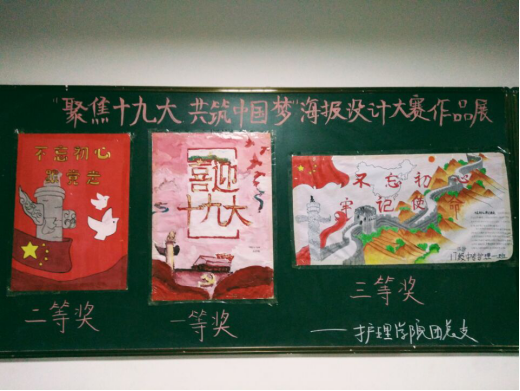 "聚焦十九大 共筑中国梦"海报设计大赛作品展
不忘初心
喜迎
十九大
不忘初心
牢记使命
二等奖
一等奖
三等奖
——护理学院团总支